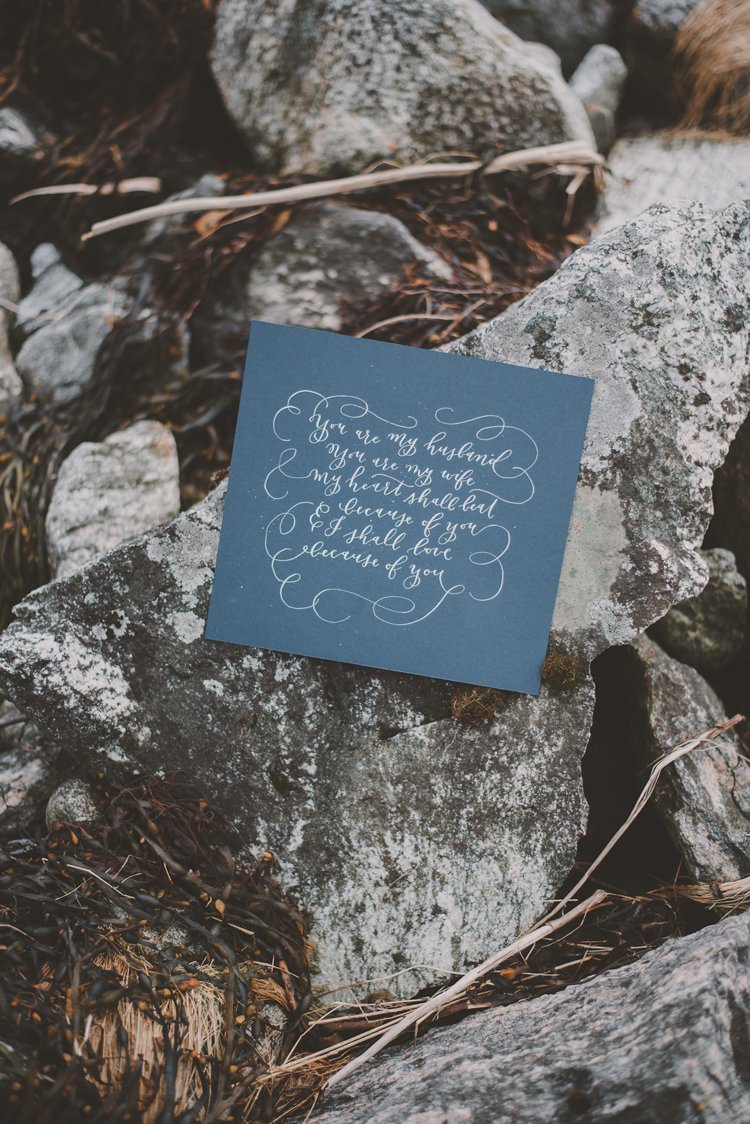 You are my husband
You are my wife
my heart shall beat
& because of you
& I shall love
because of you